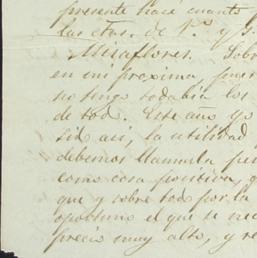 presente hace cuanto
las ctas. de P.º y G.
Miraflores. Sobr
en mi proxima, 
no tengo todabia los
de tod. Este año yo
sid asi, la utilidad
debemos llamarla
como cosa positiva, q
que y sobre tod por la
oportuno el que se nec
precio muy alto, y re